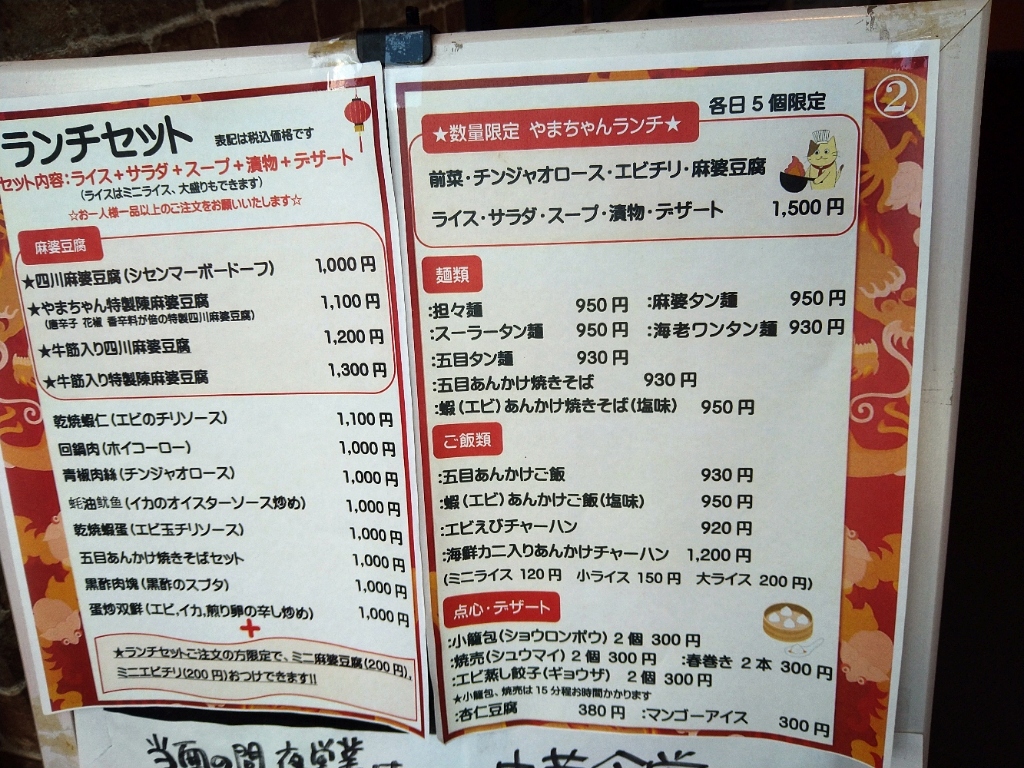 ランチセット 表記は税込価格です
セット内容:ライス+サラダ+スープ+漬物+デザート
(ライスはミニライス、大盛りもできます)
☆お一人様一品以上のご注文をお願いいたします☆
麻婆豆腐
★四川麻婆豆腐(シセンマーボードーフ) 1,000円
★やまちゃん特製陳麻婆豆腐 1,100円
(唐辛子 花椒 香辛料が倍の特製四川麻婆豆腐)
★牛筋入り四川麻婆豆腐 1,200円
★牛筋入り特製陳麻婆豆腐 1,300円
乾焼蝦仁(エビのチリソース) 1,100円
回鍋肉(ホイコーロー) 1,000円
青椒肉絲(チンジャオロース) 1,000円
蚝油鱿鱼(イカのオイスターソース炒め) 1,000円
乾焼蝦蛋(エビ玉チリソース) 1,000円
五目あんかけ焼きそばセット 1,000円
黒酢肉塊(黒酢のスブタ) 1,000円
蛋炒双鮮(エビ,イカ,煎り卵の辛し炒め) 1,000円
+
★ランチセットご注文の方限定で、ミニ麻婆豆腐(200円),
ミニエビチリ(200円)おつけできます!!
②
各日5個限定
★数量限定 やまちゃんランチ★
前菜・チンジャオロース・エビチリ・麻婆豆腐
ライス・サラダ・スープ・漬物・デザート 1,500円
麺類
:担々麺 950円 :麻婆タン麺 950円
:スーラータン麺 950円 :海老ワンタン麺 930円
:五目タン麺 930円
:五目あんかけ焼きそば 930円
:蝦(エビ)あんかけ焼きそば(塩味) 950円
ご飯類
:五目あんかけご飯 930円
:蝦(エビ)あんかけご飯(塩味) 950円
:エビえびチャーハン 920円
:海鮮カニ入りあんかけチャーハン 1,200円
(ミニライス 120円 小ライス 150円 大ライス 200円)
点心・デザート
:小籠包(ショウロンポウ)2個 300円
:焼売(シュウマイ)2個 300円 :春巻き 2本 300円
:エビ蒸し餃子(ギョウザ) 2個 300円
★小籠包、焼売は15分程お時間かかります
:杏仁豆腐 380円 :マンゴーアイス 300円
当面の間 夜営業